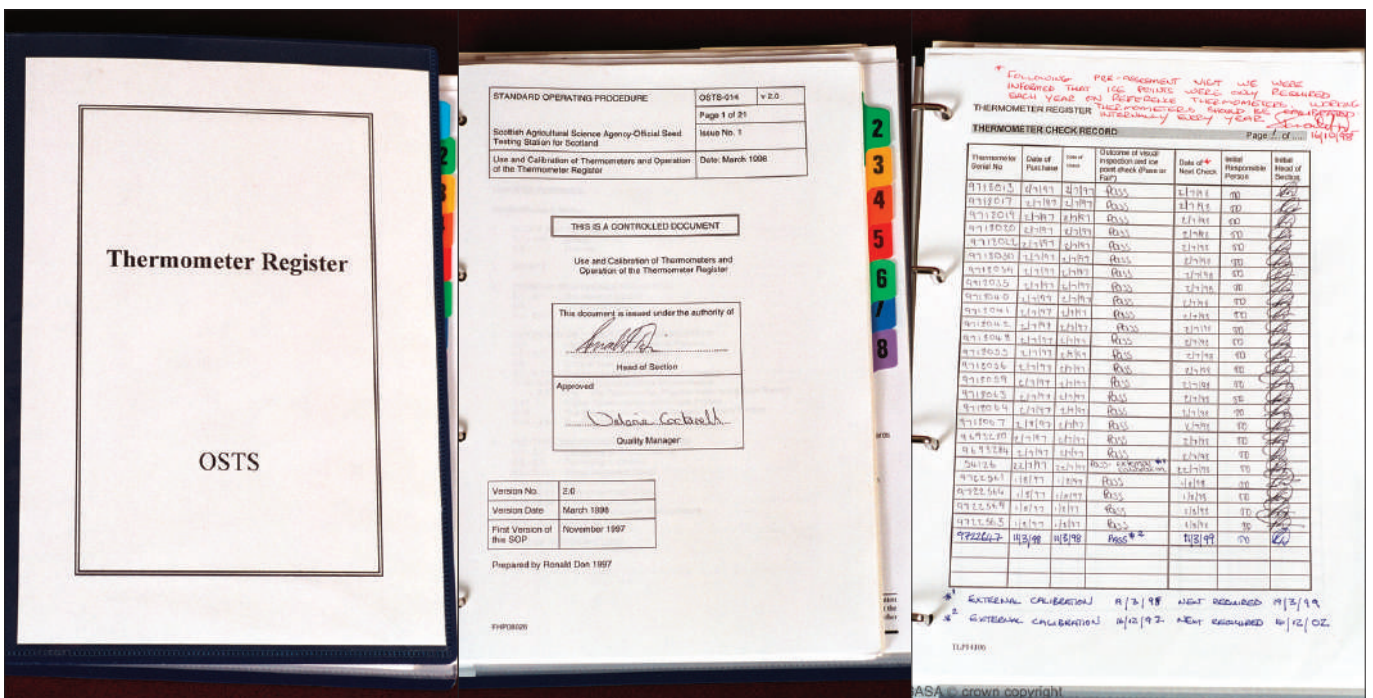 Thermometer Register
OSTS
STANDARD OPERATING PROCEDURE
OSTS-014
v 2.0
Page 1 of 21
Scottish Agricultural Science Agency-Official Seed
Testing Station for Scotland
Issue No. 1
Use and Calibration of Thermometers and Operation
of the Thermometer Register
Date: March 1998
THIS IS A CONTROLLED DOCUMENT
Use and Calibration of Thermometers and
Operation of the Thermometer Register
This document is issued under the authority of
Head of Section
Approved
Quality Manager
Version No.
2.0
Version Date
March 1998
First Version of
this SOP
November 1997
Prepared by Ronald Don 1997
FHP08026
2
3
4
5
6
7
8
* FOLLOWING PRE-ASSESSMENT VISIT WE WERE
INFORMED THAT ICE POINTS WERE ONLY REQUIRED
EACH YEAR ON REFERENCE THERMOMETERS. WORKING
THERMOMETER REGISTER THERMOMETERS SHOULD BE CALIBRATED
INTERNALLY EVERY YEAR
16/10/98
THERMOMETER CHECK RECORD
Page 1 of ....
Thermometer Serial No
Date of Purchase
Date of check
Outcome of visual inspection and ice point check (Pass or Fail*)
Date of* Next Check
Initial Responsible Person
Initial Head of Section
9718013 2/7/97 2/7/97 Pass 2/7/98
9718017 2/7/97 2/7/97 Pass 2/7/98
9718019 2/7/97 2/7/97 Pass 2/7/98
9718020 2/7/97 2/7/97 Pass 2/7/98
9718022 2/7/97 2/7/97 Pass 2/7/98
9718030 2/7/97 2/7/97 Pass 2/7/98
9718034 2/7/97 2/7/97 Pass 2/7/98
9718035 2/7/97 2/7/97 Pass 2/7/98
9718040 2/7/97 2/7/97 Pass 2/7/98
9718041 2/7/97 2/7/97 Pass 2/7/98
9718042 2/7/97 2/7/97 Pass 2/7/98
9718048 2/7/97 2/7/97 Pass 2/7/98
9718055 2/7/97 2/7/97 Pass 2/7/98
9718056 2/7/97 2/7/97 Pass 2/7/98
9718059 2/7/97 2/7/97 Pass 2/7/98
9718063 2/7/97 2/7/97 Pass 2/7/98
9718064 2/7/97 2/7/97 Pass 2/7/98
2/7/97 Pass 2/7/98
9693280 2/7/97 2/7/97 Pass 2/7/98
9693284 2/7/97 2/7/97 Pass 2/7/98
54126 22/7/97 22/7/97 Pass- EXTERNAL *1 22/7/98
9722561 1/8/97 1/8/97 Pass 1/8/98
9722564 1/8/97 1/8/97 Pass 1/8/98
9722569 1/8/97 1/8/97 Pass 1/8/98
9722563 1/8/97 1/8/97 Pass 1/8/98
9722647 11/3/98 11/3/98 Pass *2 11/3/99
*1 EXTERNAL CALIBRATION 19/3/98 NEXT REQUIRED 19/3/99
*2 EXTERNAL CALIBRATION 16/12/97 NEXT REQUIRED 16/12/02
SASA © crown copyright